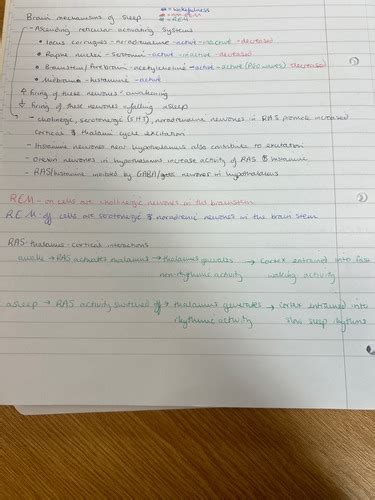 Brain mechanisms of sleep
= wakefulness
= REM
- Ascending reticular activating systems
• locus - noradrenaline - active - inactive - decreased
• Raphe nuclei - serotonin - active - inactive - decreased
• Brainstem/forebrain - acetylcholine - active - active (PGO waves) decreased
• Midbrain - histamine - active
↑ firing of these neurones = awakening
↓ firing of these neurones = falling asleep
- cholinergic, serotonergic (5HT), noradrenaline neurones in RAS promote increased
cortical & thalamic cycle excitation
- Histamine neurones near hypothalamus also contribute to excitation
- Orexin neurones in hypothalamus increase activity of RAS & histamine
- RAS/histamine inhibited by GABA/ neurones in hypothalamus
REM-on cells are cholinergic neurones in the brainstem
REM-off cells are serotonergic & noradrenic neurones in the brain stem
RAS-thalamus-cortical interactions
awake → RAS activates thalamus → thalamus generates → Cortex entrained into fast
non-rhythmic activity waking activity
asleep → RAS activity switched off → thalamus generates → cortex entrained into
rhythmic activity slow sleep rhythms
1)
2)